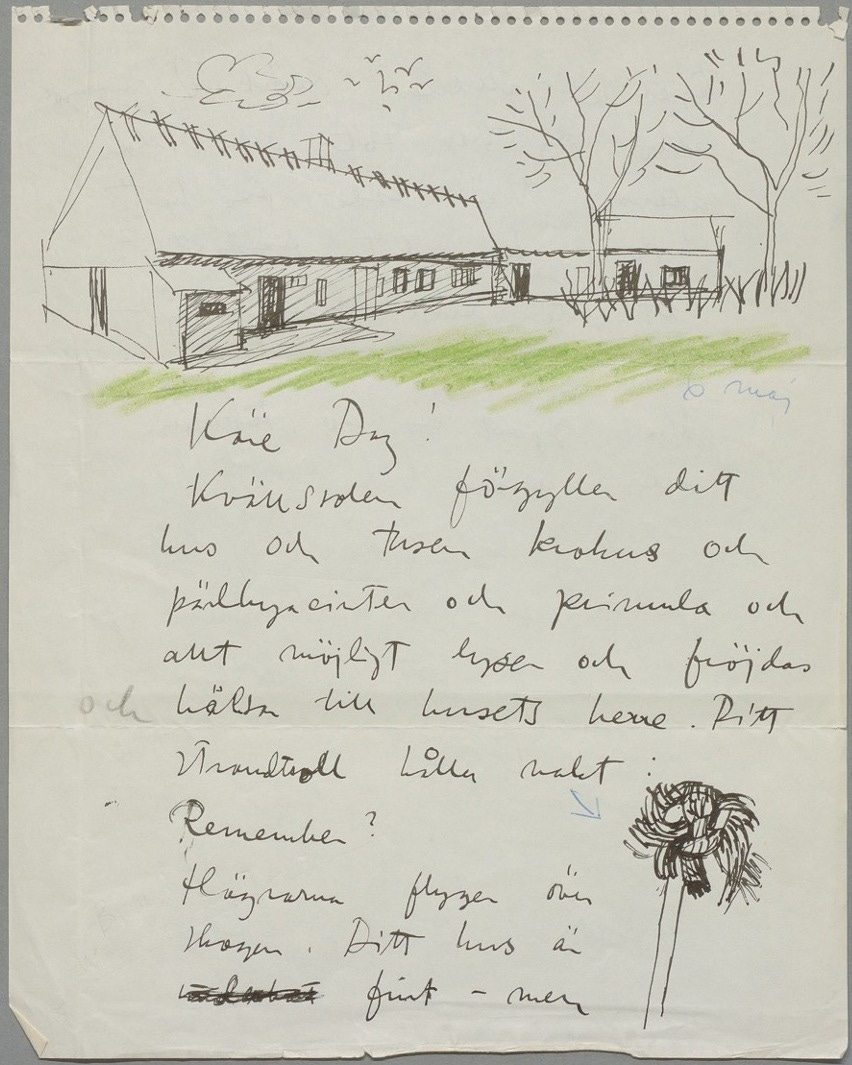 6 maj
Käre Dag!
Kvällssolen förgyller ditt
hus och tusen krokus och
pärlhyacinter och primula och
allt möjligt lyser och fröjdas
och hälsa till husets herre. Ditt
strandtroll håller vakt:
Remember?
Hägrarna flyger över
skogen. Ditt hus är
fint – men